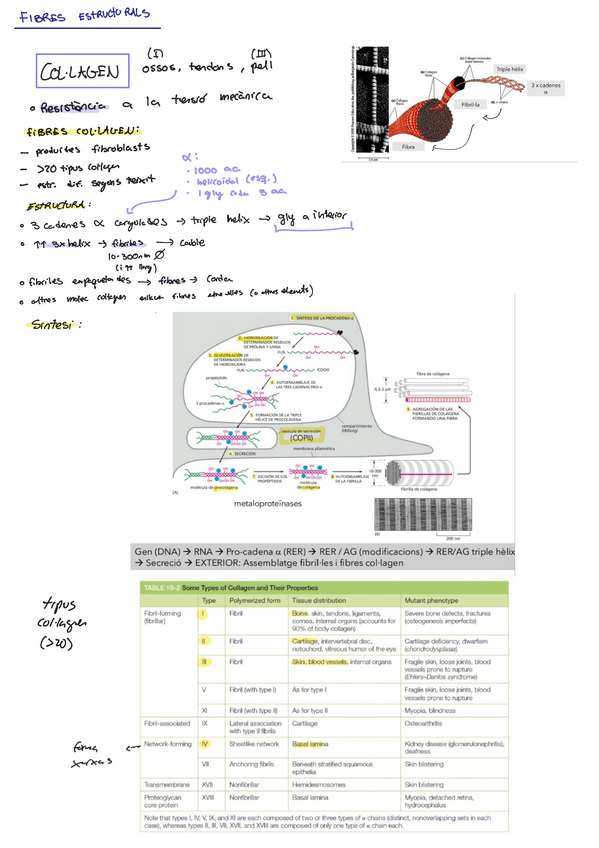 FIBRES ESTRUCTURALS
COL·LAGEN
(I) (III)
ossos, tendons, pell
o Resistència a la tensió mecànica
FIBRES COL·LAGEN:
- produides fibroblasts
- >20 tipus collagen
- estr. dif. segons teixit
α:
· 1000 aa
· helicoidal (esq.)
· 1 gly cada 3 aa
ESTRUCTURA:
o 3 cadenes α → triple helix → gly a interior
o ↑↑ 3x helix → fibriles → cable
10-300nm Ø
o fibriles empaquetades → fibres → corda
Síntesi:
Triple hèlix
3 x cadenes α
Fibril·la
Fibra
1. SÍNTESIS DE LA PROCADENA α
2. HIDROXILACIÓN DE DETERMINADOS RESIDUOS DE PROLINA Y LISINA
3. GLUCOSILACIÓN DE DETERMINADOS RESIDUOS DE HIDROXILISINA
H₂N
H₂N COOH
propéptido
4. AUTOENSAMBLAJE DE LAS TRES CADENAS PRO-α
3 procadenas α
5. FORMACIÓN DE LA TRIPLE HÉLICE DE PROCOLÁGENO
vesícula de secreción
(COPII)
compartimento ER/Golgi
membrana plasmática
6. SECRECIÓN
7. ESCISIÓN DE LOS PROPÉPTIDOS
8. AUTOENSAMBLAJE DE LA FIBRILLA
molécula de procolágeno
molécula de colágeno
fibrilla de colágeno
10-300 nm
fibra de colágeno
0,5-3 μm
9. AGREGACIÓN DE LAS FIBRILLAS DE COLÁGENO FORMANDO UNA FIBRA
(A)
(B)
200 nm
metaloproteïnases
Gen (DNA) → RNA → Pro-cadena α (RER) → RER / AG (modificacions) → RER/AG triple hèlix
→ Secreció → EXTERIOR: Assemblatge fibril·les i fibres col·lagen
tipus
collagen
(>20)
TABLE 19–2 Some Types of Collagen and Their Properties
Type Polymerized form Tissue distribution Mutant phenotype
Fibril-forming (fibrillar) I Fibril Bone, skin, tendons, ligaments, cornea, internal organs (accounts for 90% of body collagen) Severe bone defects, fractures (osteogenesis imperfecta)
II Fibril Cartilage, intervertebral disc, notochord, vitreous humor of the eye Cartilage deficiency, dwarfism (chondrodysplasia)
III Fibril Skin, blood vessels, internal organs Fragile skin, loose joints, blood vessels prone to rupture (Ehlers–Danlos syndrome)
V Fibril (with type I) As for type I Fragile skin, loose joints, blood vessels prone to rupture
XI Fibril (with type II) As for type II Myopia, blindness
Fibril-associated IX Lateral association with type II fibrils Cartilage Osteoarthritis
Network-forming IV Sheetlike network Basal lamina Kidney disease (glomerulonephritis), deafness
VII Anchoring fibrils Beneath stratified squamous epithelia Skin blistering
Transmembrane XVII Nonfibrillar Hemidesmosomes Skin blistering
Proteoglycan core protein XVIII Nonfibrillar Basal lamina Myopia, detached retina, hydrocephalus
Note that types I, IV, V, IX, and XI are each composed of two or three types of α chains (distinct, nonoverlapping sets in each
case), whereas types II, III, VII, XVII, and XVIII are composed of only one type of α chain each.
forma
xarxas